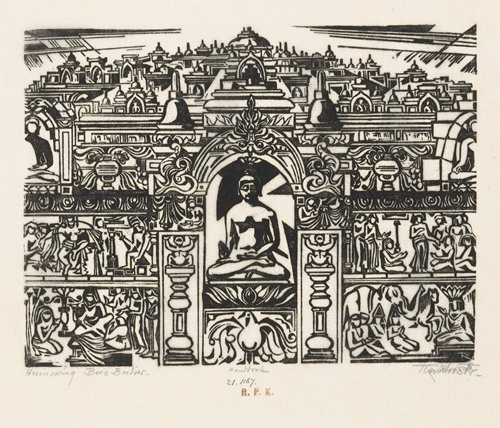 Herinnering Boro Budur.
Handdruk
21.1167.
R. P. K.